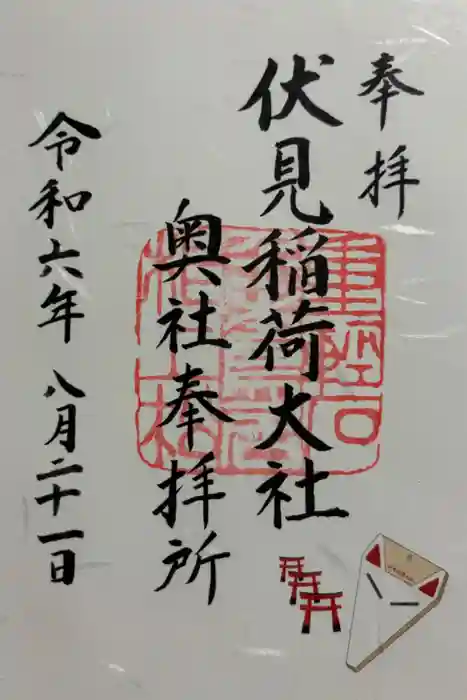 奉拝
伏見稲荷大社
奥社奉拝所
令和六年 八月二十一日